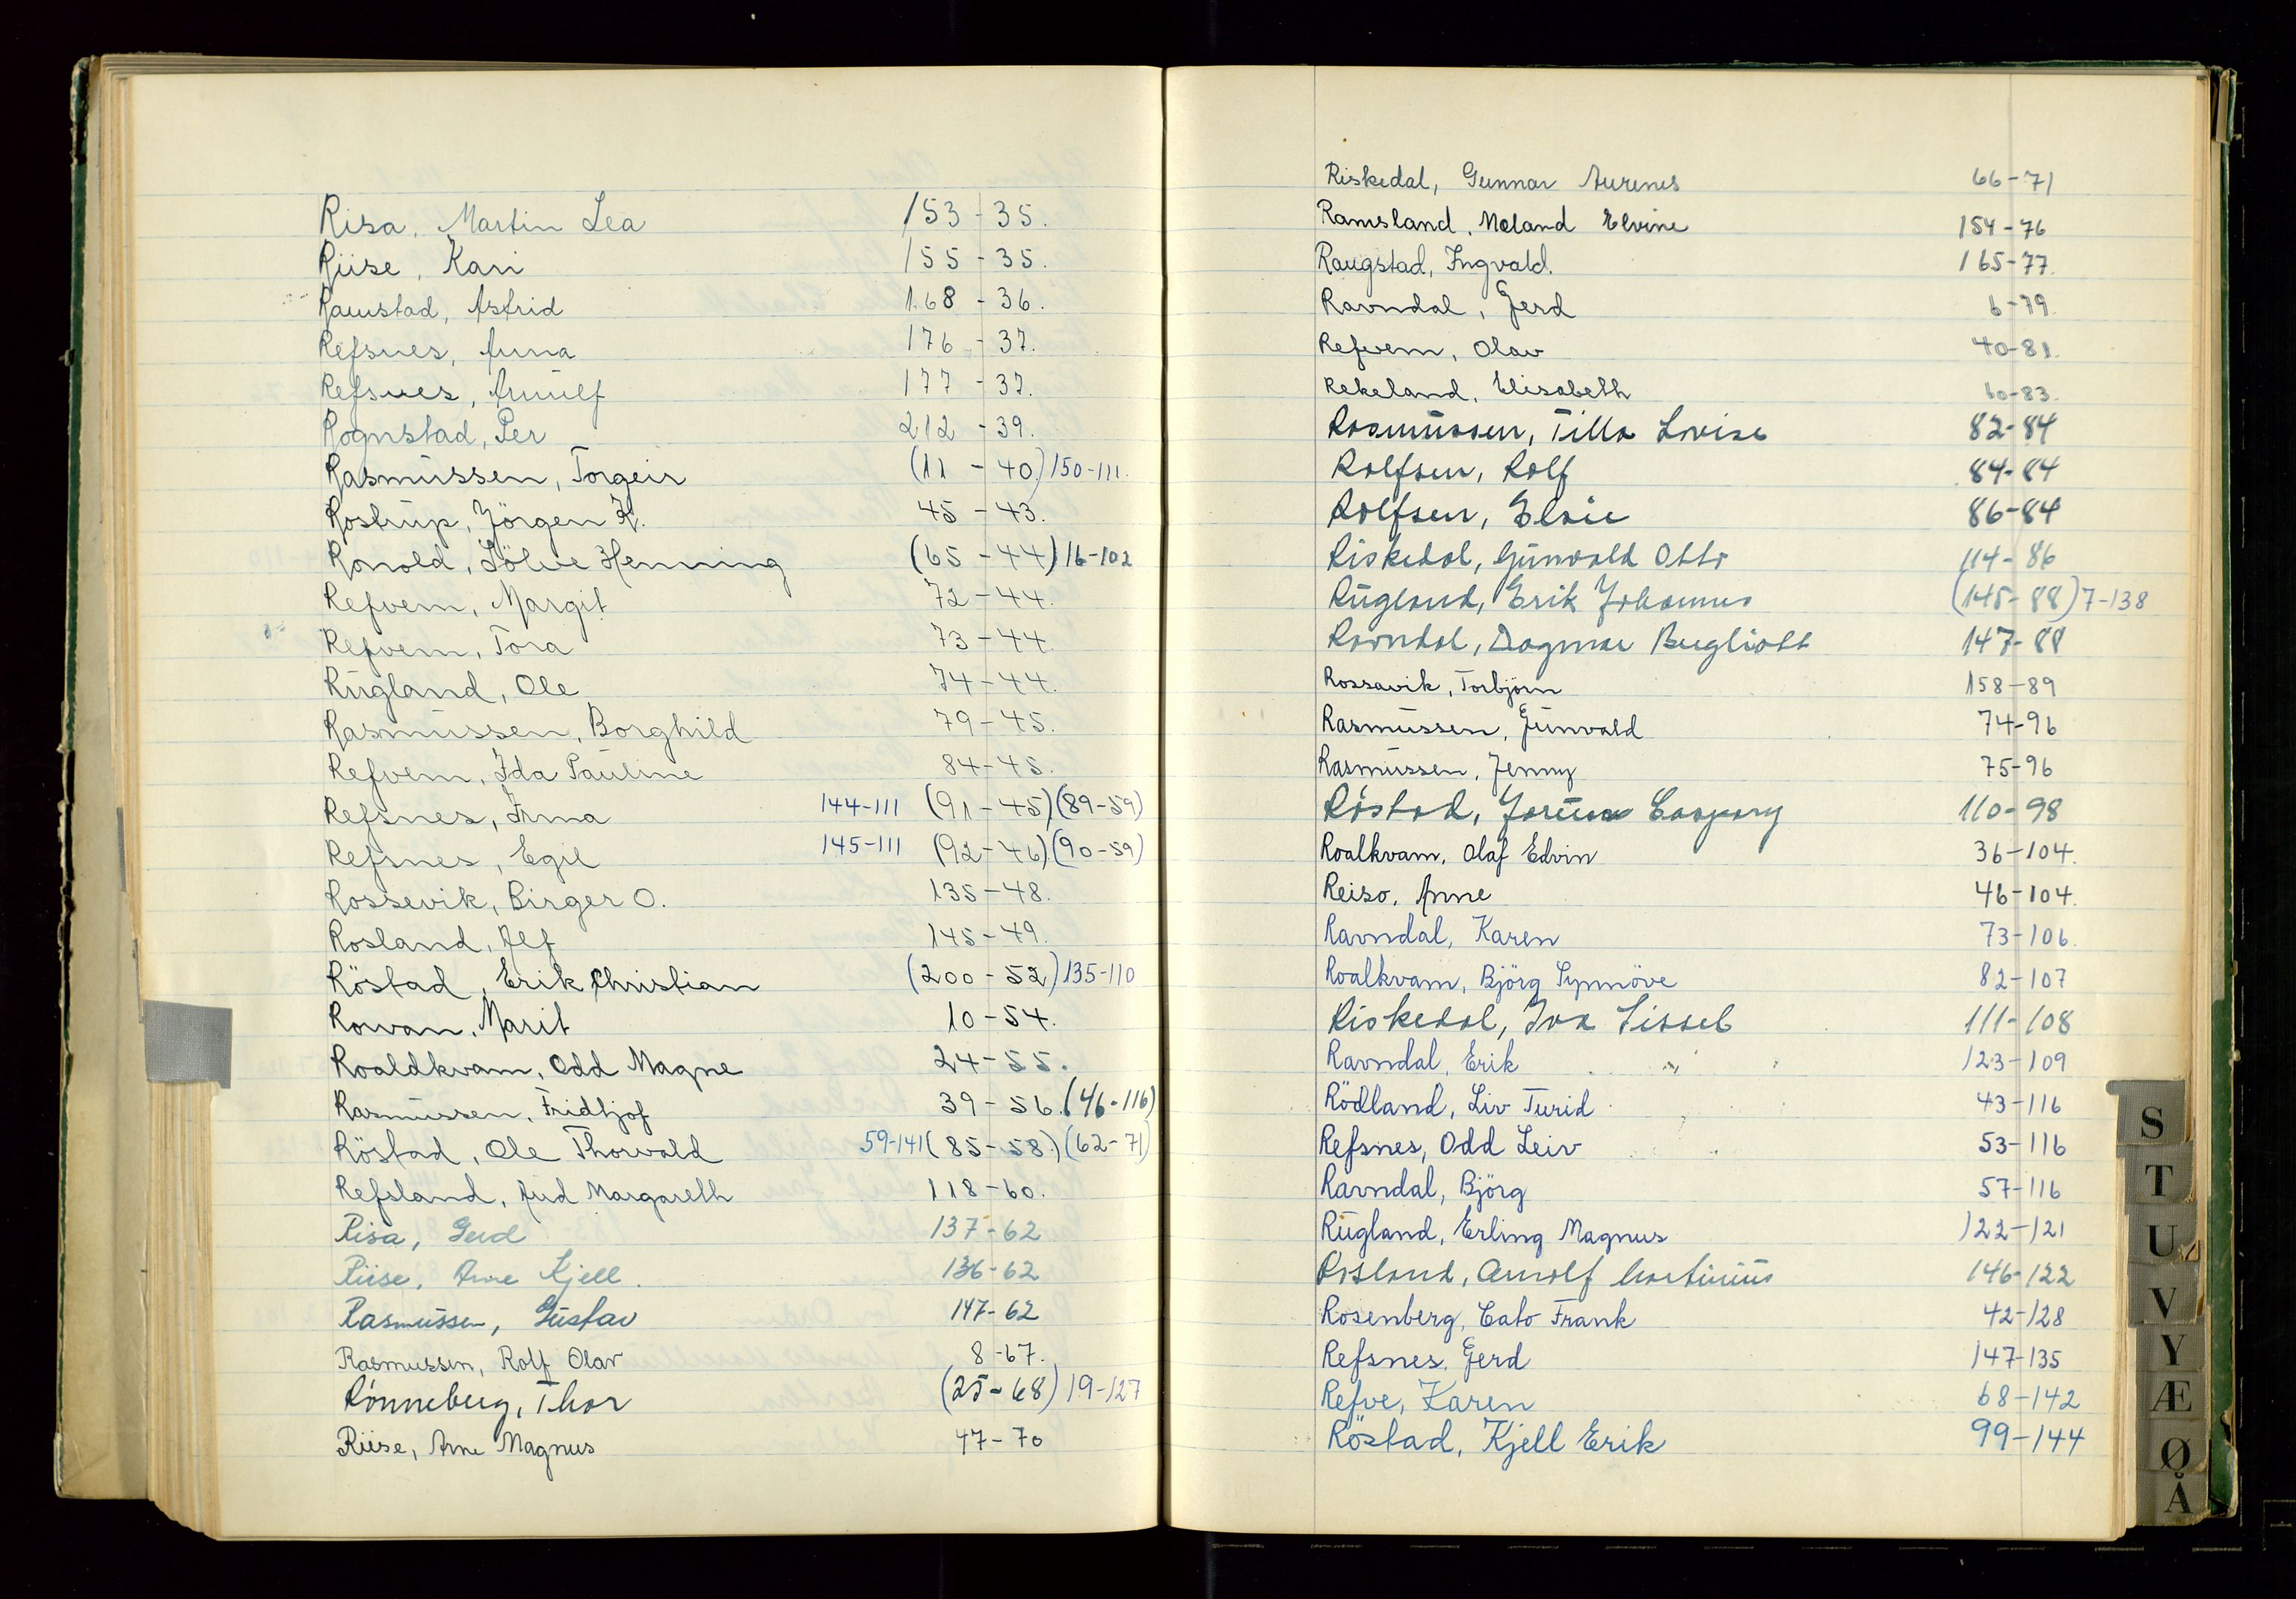 Risa, Martin Lea 153-35.
Riise, Kari 155-35.
Ramstad, Astrid 168-36.
Refsnes, Anna 176-37.
Refsnes, Arnulf 177-37.
Rognstad, Per 212-39.
Rasmussen, Torgeir (11-40) 150-111.
Rostrup, Jörgen K. 45-43.
Ronold, Sölve Henning (65-44) 16-102
Refvem, Margit 72-44.
Refvem, Tora 73-44.
Rugland, Ole 74-44.
Rasmussen, Borghild 79-45.
Refvem, Ida Pauline 84-45.
Refsnes, Irma 144-111 (91-45) (89-59)
Refsnes, Egil 145-111 (92-46) (90-59)
Rossevik, Birger O. 135-48.
Rosland, Alf 145-49.
Röstad, Erik Christian (200-52) 135-110
Rowan, Marit 10-54.
Roaldkvam, Odd Magne 24-55.
Rasmussen, Fridtjof 39-56. (46-116)
Röstad, Ole Thorvald 59-141 (85-58.) (62-71)
Refsland, Aud Margareth 118-60.
Risa, Gerd 137-62
Riise, Arne Kjell. 136-62
Rasmussen, Gustav 147-62
Rasmussen, Rolf Olav 8-67.
Rönneberg, Thor (25-68) 19-127
Riise, Arne Magnus 47-70
Riskedal, Gunnar Aurenes 66-71
Ramsland, Meland Elvine 154-76
Raugstad, Ingvald. 165-77.
Ravndal, Gerd 6-79.
Refvem, Olav 40-81.
Rekeland, Elisabeth 60-83.
Rasmussen, Tilla Lovise 82-84
Rolfsen, Rolf 84-84
Rolfsen, Elsie 86-84
Riskedal, Gunvald Otto 114-86
Rugland, Erik Johannes (145-88) 7-138
Ravndal, Dagmar 147-88
Rossavik, Torbjörn 158-89
Rasmussen, Gunvald 74-96
Rasmussen, Jenny 75-96
Röstad, Caspary 110-98
Roalkvam, Olaf Edvin 36-104.
Reiso, Anne 46-104.
Ravndal, Karen 73-106.
Roalkvam, Björg Synnöve 82-107
Riskedal, Iva Sissel 111-108
Ravndal, Erik 123-109
Rödland, Liv Turid 43-116
Refsnes, Odd Leiv 53-116
Ravndal, Björg 57-116
Rugland, Erling Magnus 122-121
Rosland, Arnolf Martinius 146-122
Rosenberg, Cato Frank 42-128
Refsnes, Gerd 147-135
Refve, Karen 68-142
Röstad, Kjell Erik 99-144
S
T
U
V
Y
Æ
Ø
Å